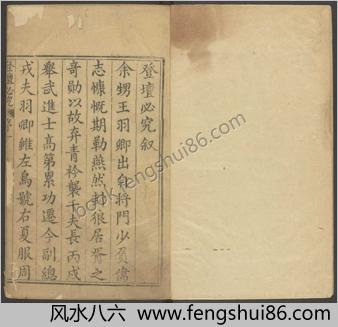 登壇必究叙
余甥王羽卿出自將門少負儁
志慷慨期勒燕然封狼居胥之
奇勛以故弃青衿襲千夫長丙戌
舉武進士高第累功遷今副總
戎夫羽卿雖左烏號右夏服周
登壇必究
book.fengshui86.com
风水八六 www.fengshui86.com